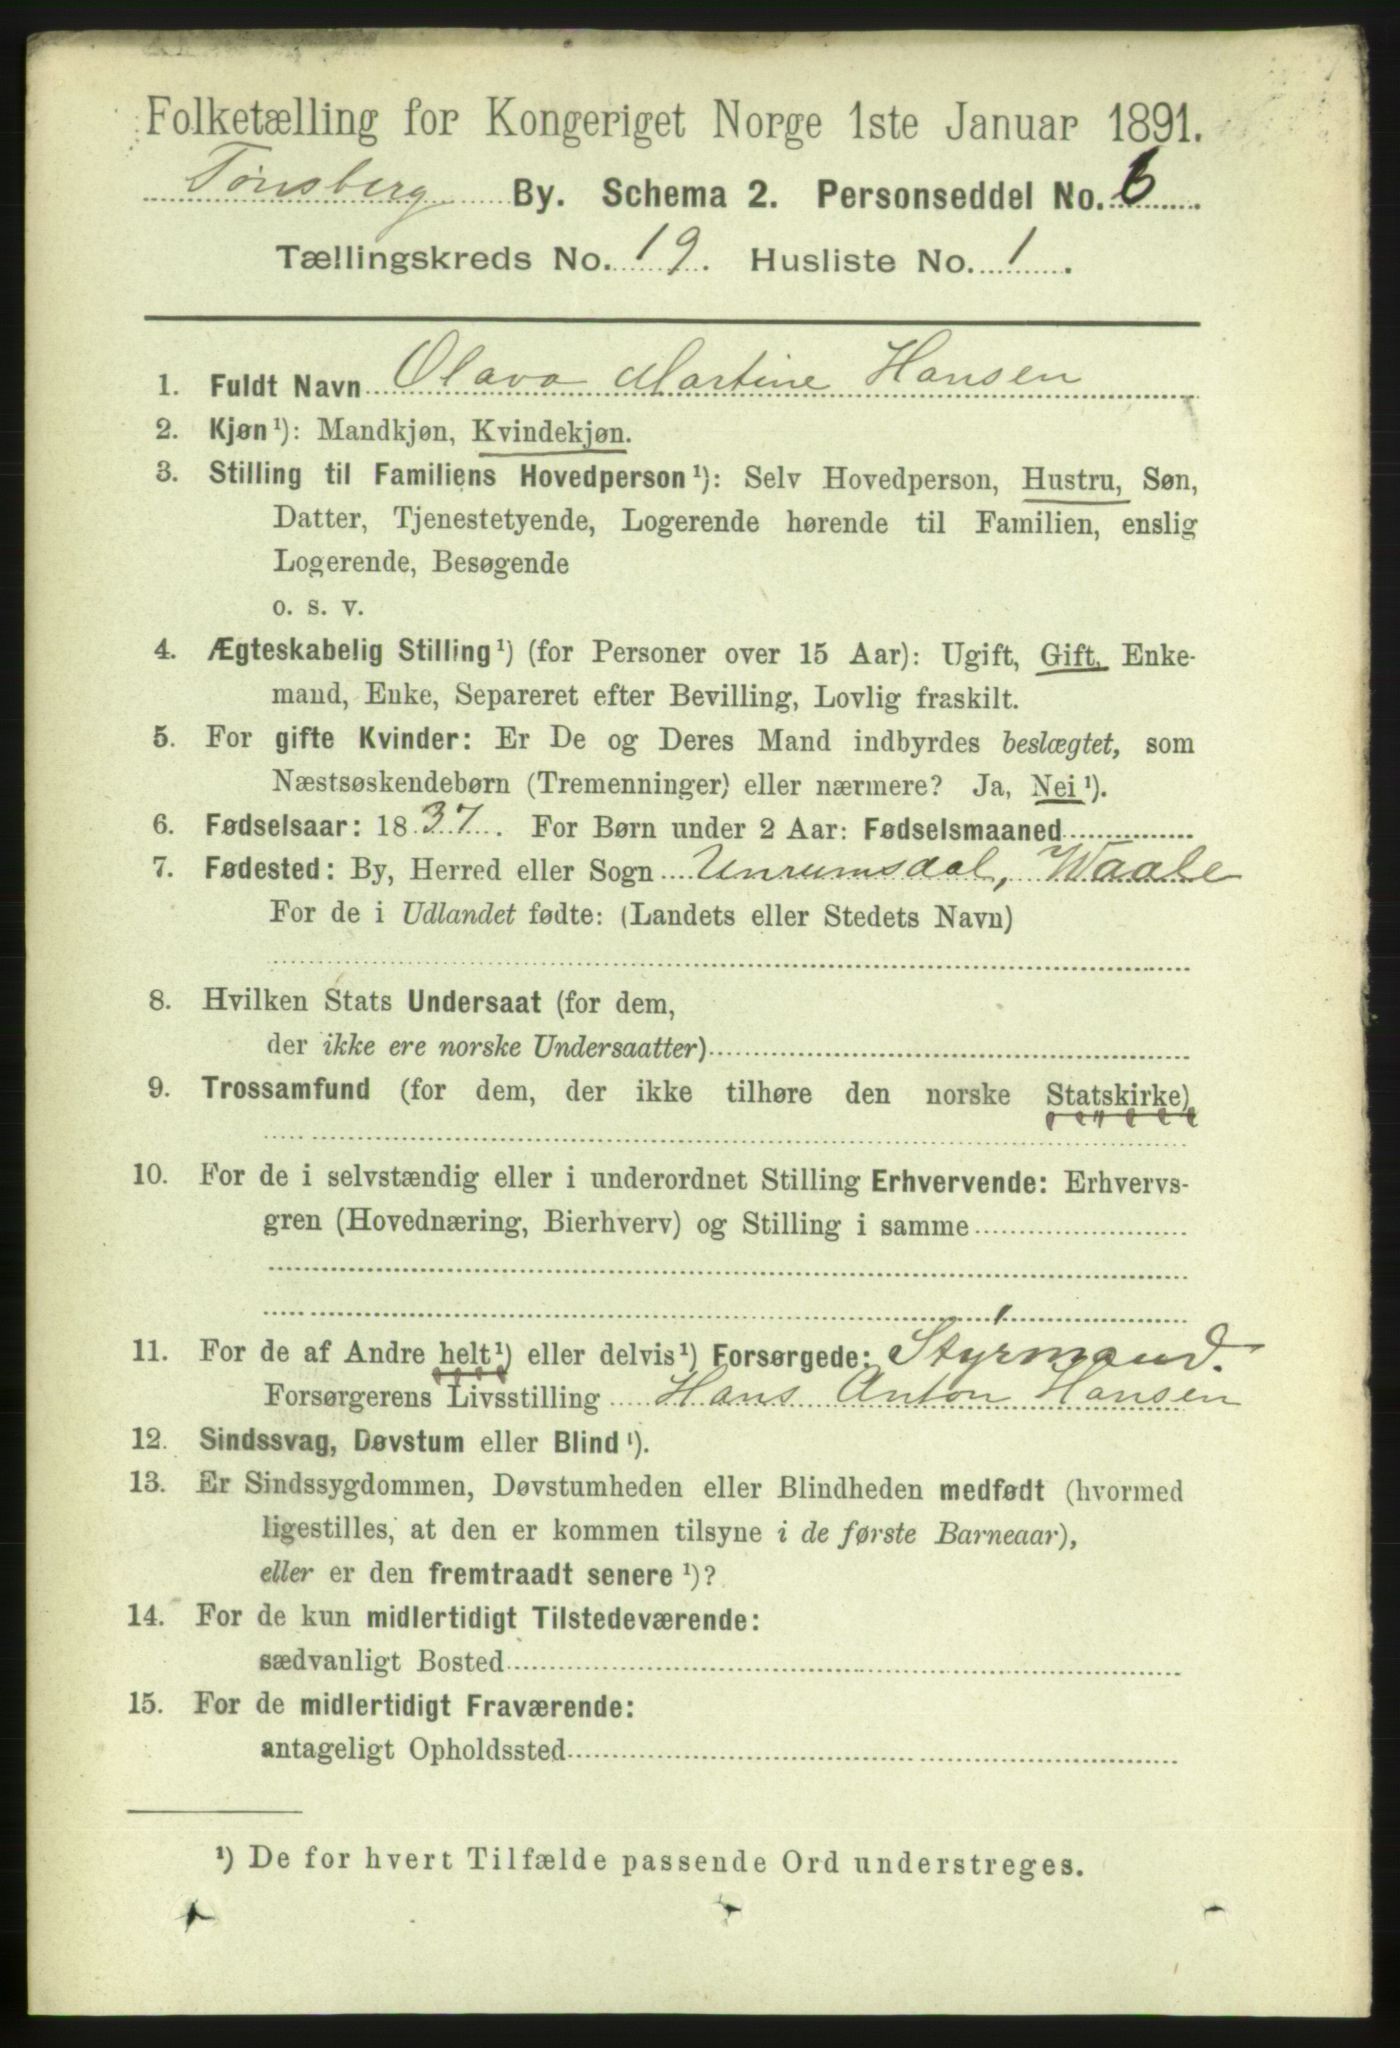 Folketælling for Kongeriget Norge 1ste Januar 1891.
Tønsberg By. Schema 2. Personseddel No. 6.
Tællingskreds No. 19. Husliste No. 1.
1. Fuldt Navn Olava Martine Hansen
2. Kjøn¹): Mandkjøn, Kvindekjøn.
3. Stilling til Familiens Hovedperson¹): Selv Hovedperson, Hustru, Søn,
Datter, Tjenestetyende, Logerende hørende til Familien, enslig
Logerende, Besøgende
o. s. v.
4. Ægteskabelig Stilling¹) (for Personer over 15 Aar): Ugift, Gift, Enke-
mand, Enke, Separeret efter Bevilling, Lovlig fraskilt.
5. For gifte Kvinder: Er De og Deres Mand indbyrdes beslægtet, som
Næstsøskendebørn (Tremenninger) eller nærmere? Ja, Nei¹).
6. Fødselsaar: 1837. For Børn under 2 Aar: Fødselsmaaned
7. Fødested: By, Herred eller Sogn Unrumsdal, Waale
For de i Udlandet fødte: (Landets eller Stedets Navn)
8. Hvilken Stats Undersaat (for dem,
der ikke ere norske Undersaatter)
9. Trossamfund (for dem, der ikke tilhøre den norske Statskirke)
10. For de i selvstændig eller i underordnet Stilling Erhvervende: Erhvervs-
gren (Hovednæring, Bierhverv) og Stilling i samme
11. For de af Andre helt¹) eller delvis¹) Forsørgede: Styrmand.
Forsørgerens Livsstilling Hans Anton Hansen
12. Sindssvag, Døvstum eller Blind¹).
13. Er Sindssygdommen, Døvstumheden eller Blindheden medfødt (hvormed
ligestilles, at den er kommen tilsyne i de første Barneaar),
eller er den fremtraadt senere¹)?
14. For de kun midlertidigt Tilstedeværende:
sædvanligt Bosted
15. For de midlertidigt Fraværende:
antageligt Opholdssted
¹) De for hvert Tilfælde passende Ord understreges.